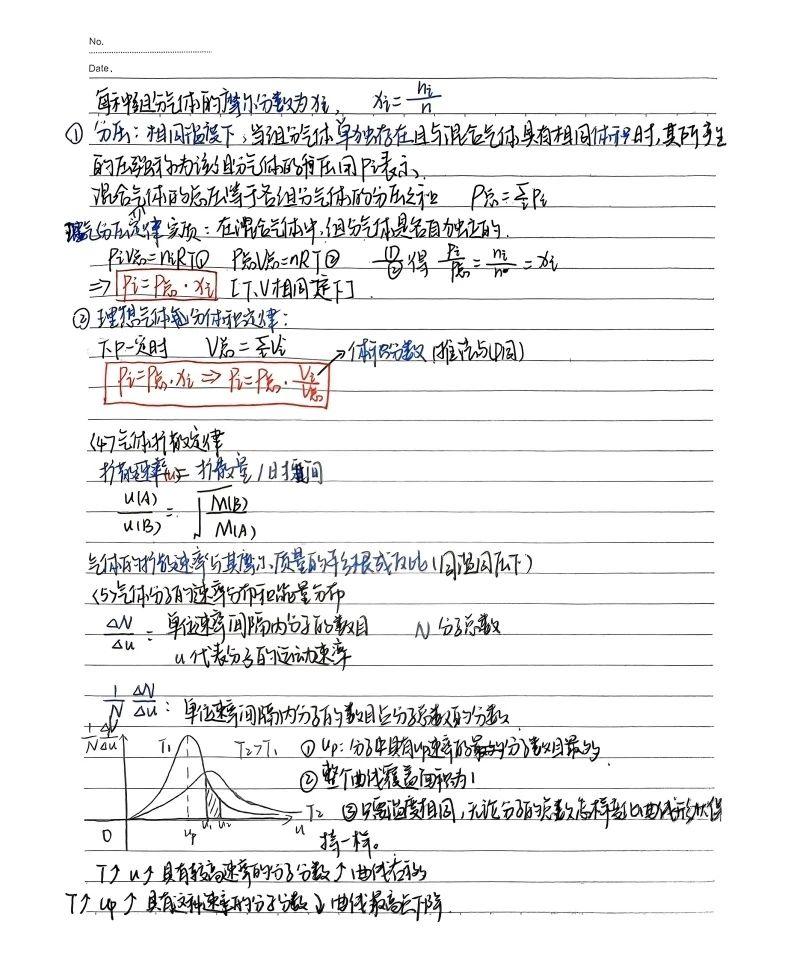 No.
Date.
每种组分气体的摩尔分数为xi, xi = ni/n
① 分压:相同温度下,当组分气体单独存在且与混合气体具有相同体积时,其所产生
的压强称为该组分气体的分压用Pi表示、
混合气体的总压等于各组分气体的分压之和 P总=∑Pi
理气分压定律实质:在混合气体中,组分气体是各自独立的.
PiV总=niRT① P总V总=nRT② ①/②得 Pi/P总 = ni/n = xi
=> Pi=P总·xi [T、V相同定下]
② 理想气体分体积定律:
T.P一定时 V总=∑Vi →体积分数(推论与①同)
Pi=P总·xi => Pi=P总·Vi/V总
(4)气体扩散定律
扩散速率(u)= 扩散量/时间
u(A)/u(B) = √M(B)/M(A)
气体的扩散速率与其摩尔质量的平方根成反比(同温同压下)
(5)气体分子的速率分布和能量分布
ΔN/Δu = 单位速率间隔内分子的数目 N 分子总数
u代表分子的运动速率
1/N ΔN/Δu: 单位速率间隔内分子的数目占分子总数的分数
1/N ΔN/Δu T1 T2>T1 ① up:分子中具有up速率的分子数目最多
② 整个曲线覆盖面积为1
T2 ③ 只要温度相同,无论分子的总数怎样变化曲线形状保
0 up u1 u2 u 持一样。
T↑ u↑ 具有较高速率的分子分数↑ 曲线右移
T↑ up↑ 具有这种速率的分子分数↓ 曲线最高点下降.